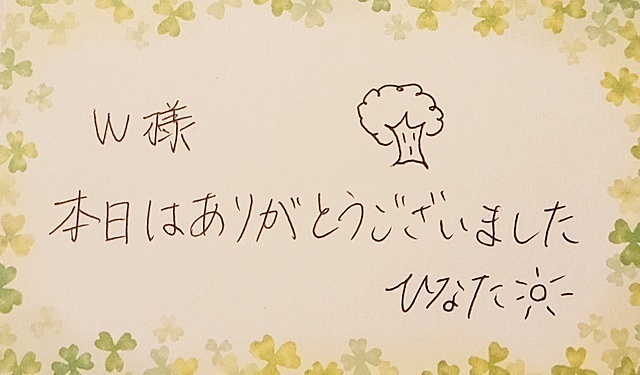 W様
本日はありがとうございました
ひなた